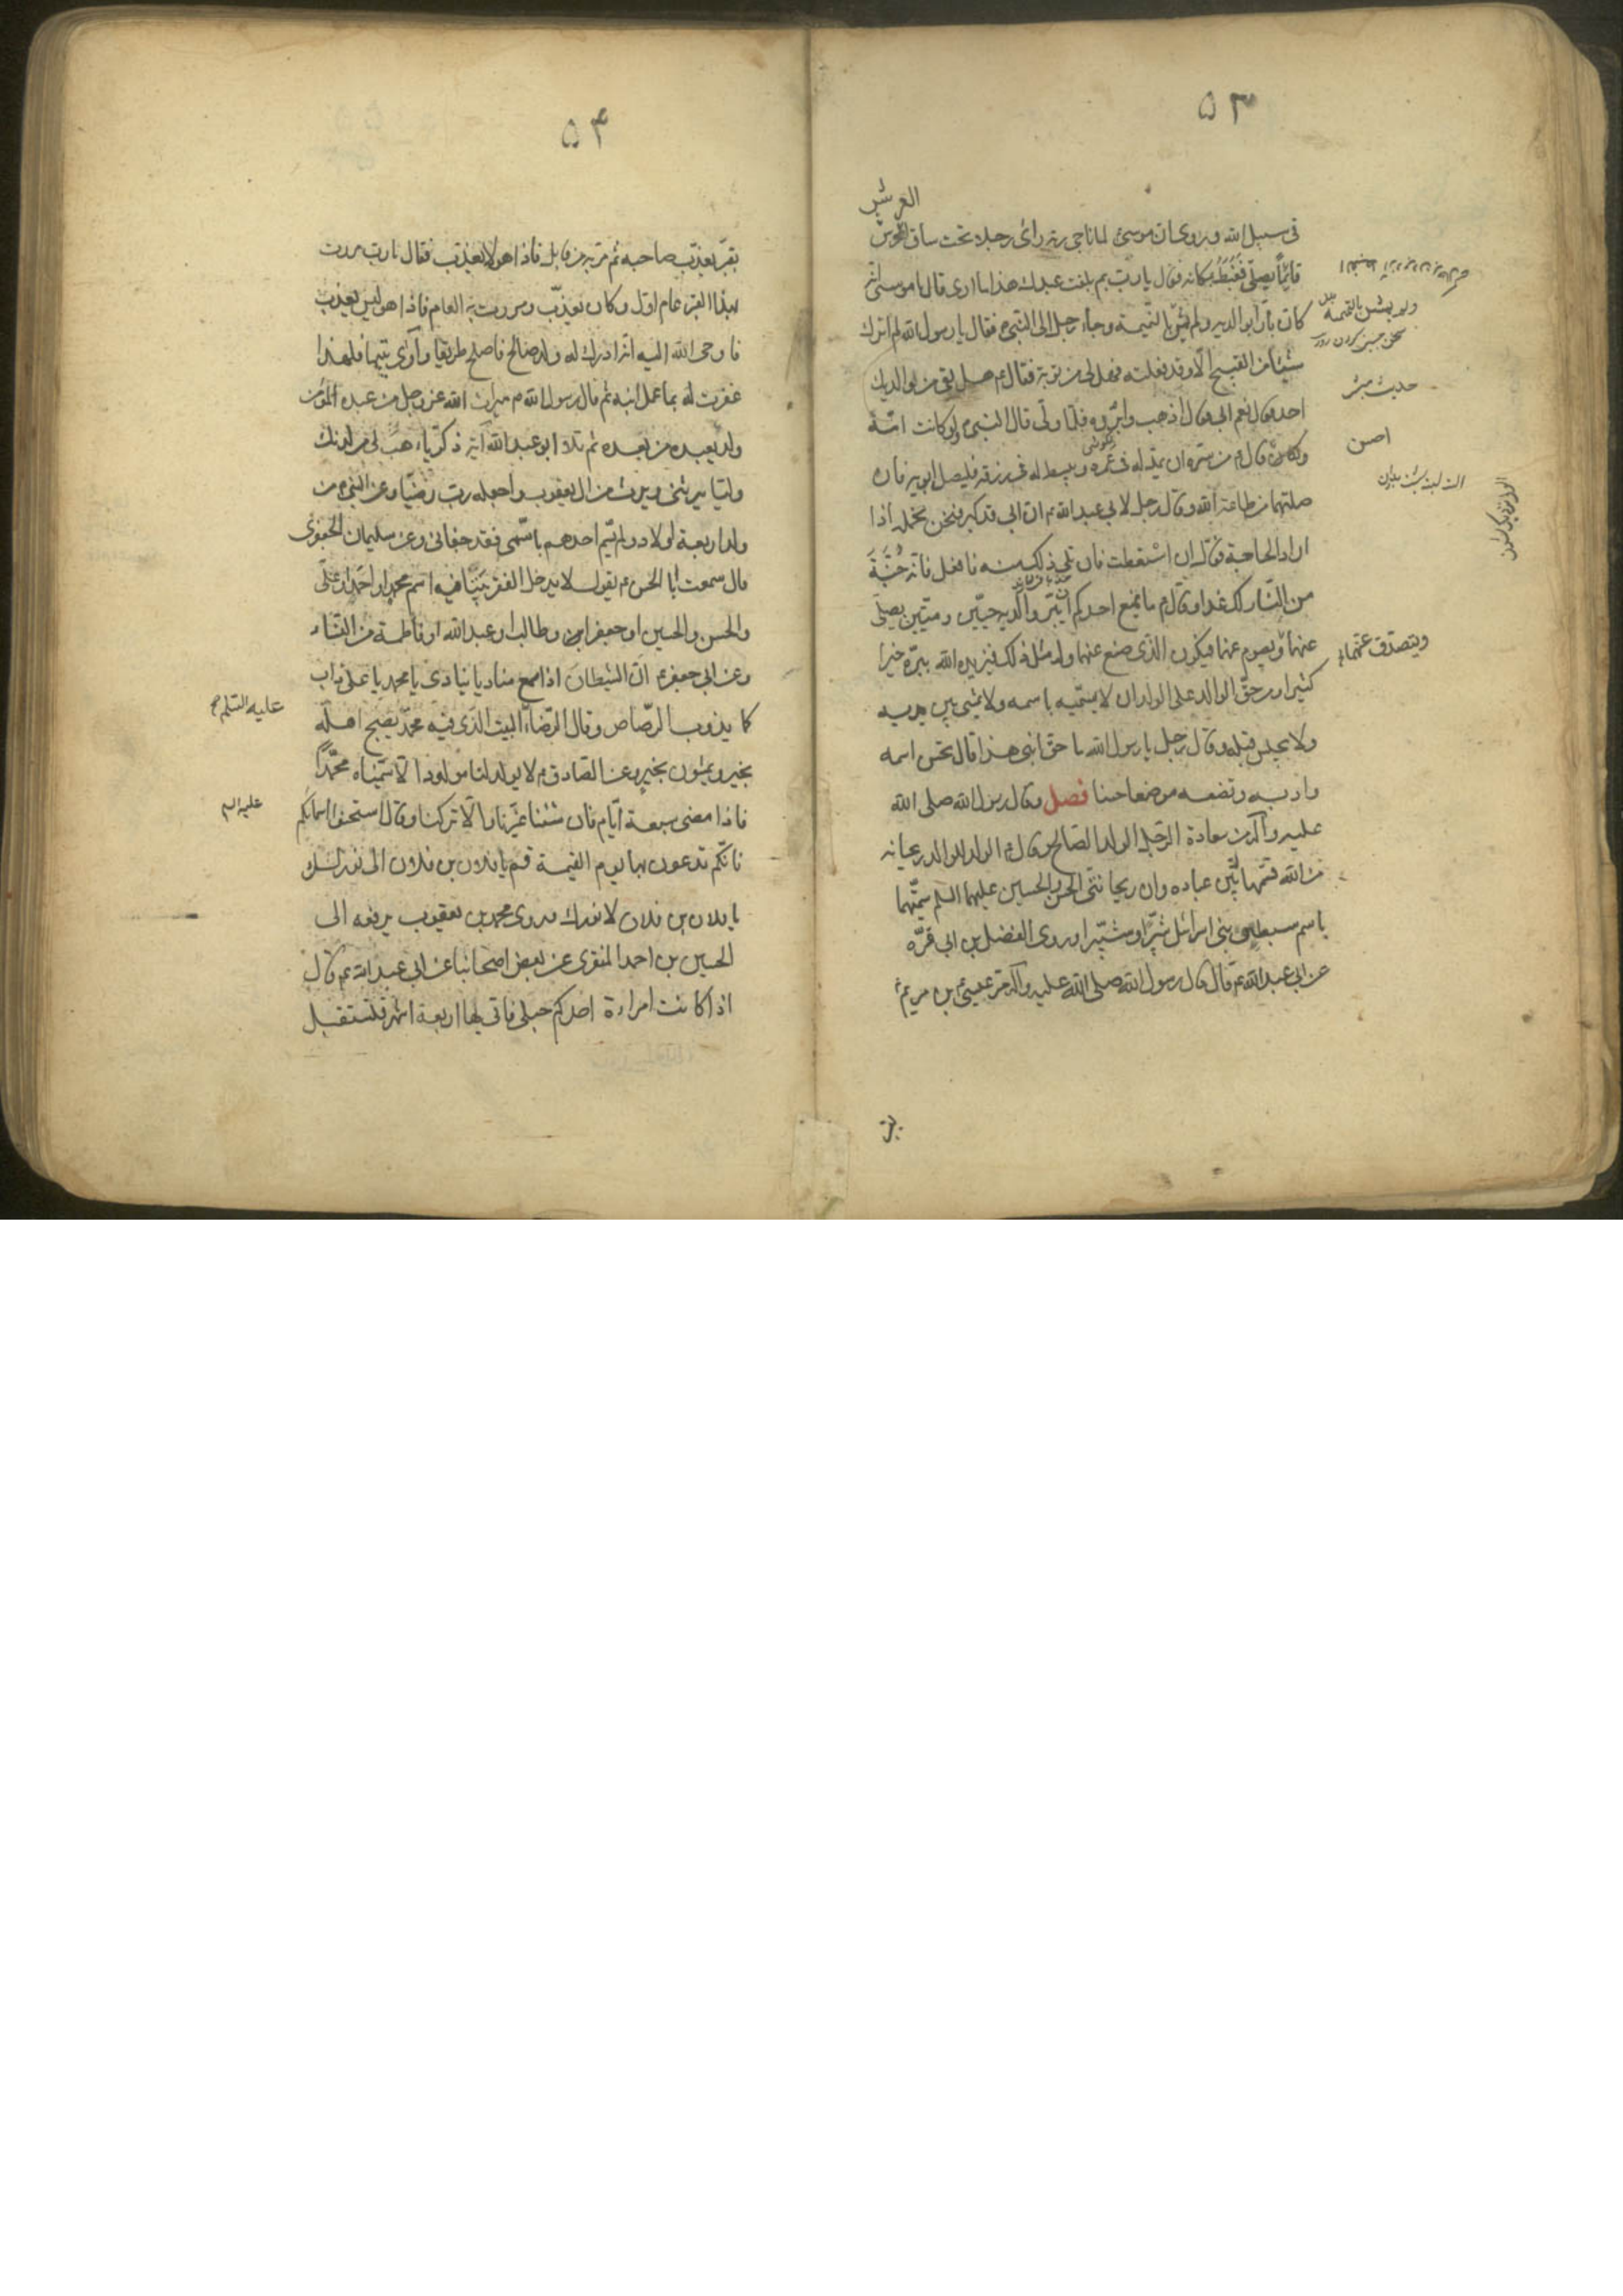 ۵۳
العرش
فی سبیل الله وروی ان موسی لما ناجی ربه رای رجلا تحت ساق العرش
قائماً یصلّی فَغَبَطَهُ بمکانه فقال یا رب بم بلغت عبدك هذا ما اری قال یا موسی انه
کان بارّا بوالدیه ولم یمش بالنمیمة وجاء رجل الی النبی ص فقال یا رسول الله لم اترك
شیئا من القبیح الا وقد فعلته فهل لی من توبة فقال ع هل بقی من والدیك
احد قال نعم ابی قال اذهب وابرّوه فلما ولّی قال النبی ص لو کانت امّه
وقال ع من سرّه ان یمدّ له فی عمره ویبسط له فی رزقه فلیصل ابویه فان
صلتهما من طاعة الله وقال رجل لابی عبد الله ع ان ابی قد کبر فنحن نحمله اذا
اراد الحاجة فقال ان استطعت ان تلی ذلك منه فافعل فانه جُنَّةَ
من النّار لك غدا وقال ع ما یمنع احدکم ان یبّر والدیه حیّین ومیّتین یصلّی
عنهما ویصوم عنهما فیکون الذی صنع عنهما وله مثل ذلك فیزیده الله ببرّه خیرا
کثیرا ومن حقّ الوالد علی الولد ان لا یسمّیه باسمه ولا یمشی بین یدیه
ولا یجلس قبله وقال رجل یا رسول الله ما حق ابنی هذا قال تحسن اسمه
وادبه وتضعه موضعا حسنا فصل وقال رسول الله صلی الله
علیه وآله من سعادة الرّجل الولد الصّالح وقال ع الولد للوالد ریحانه
من الله قسمها بین عباده وان ریحانتی الحسن والحسین علیهما السلم سمّیتهما
باسم سبطین بنی اسرائیل شبّرا وشبّیرا وروی الفضل بن ابی قرّه
عن ابی عبد الله ع قال قال رسول الله صلی الله علیه وآله مرّ عیسی بن مریم ع
حدیث
ویتصدّق عنهما
۵۴
بقبر یعذّب صاحبه ثم مرّ به من قابل فاذا هو لا یعذّب فقال یا رب مررت
بهذا القبر عام اوّل وکان یعذّب ومررت به العام فاذا هو لیس یعذب
فاوحی الله الیه انه ادرك له ولد صالح فاصلح طریقا وآوی یتیما فلهذا
غفرت له بما عمل ابنه ثم قال رسول الله ص میراث الله عز وجل من عبده المؤمن
ولد یعبده من بعده ثم تلا ابو عبد الله آیة زکریّاء هب لی من لدنك
ولیّا یرثنی ویرث من ال یعقوب واجعله ربّ رضیّا وعن النبی ص من
ولد اربعة اولاد ولم یسمّ احدهم باسمی فقد جفانی وعن سلیمان الجعفری
قال سمعت ابا الحسن ع یقول لا یدخل الفقر بیتا فیه اسم محمد او احمد او علی
والحسن والحسین او جعفر او طالب او عبد الله او فاطمة من النّساء
وعن ابی جعفر ع انّ الشیطان اذا سمع منادیا ینادی یا محمد یا علی ذاب
کما یذوب الرّصاص وقال الرّضا البیت الذی فیه محمّد یصبح اهله
بخیر ویمسون بخیر وعن الصّادق ع لا یولد لنا مولود الّا سمّیناه محمّداً
فاذا مضی سبعة ایّام فان شئنا غیّرنا والّا ترکنا وقال استحسنوا اسمائکم
فانّکم تدعون بها یوم القیمة قم یا فلان بن فلان الی نورك
یا فلان بن فلان لا نور لك وروی محمد بن یعقوب یرفعه الی
الحسین بن احمد المنقری عن بعض اصحابنا عن ابی عبد الله ع قال
اذا کانت امراءة احدکم حبلی فاتی لها اربعة اشهر فلتستقبل
علیه السّلم